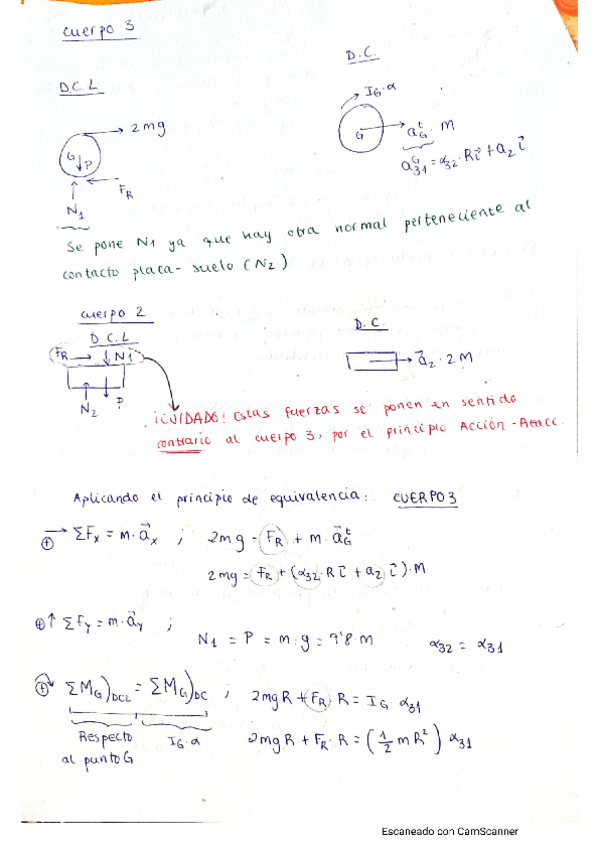 cuerpo 3
D.C.L
2mg
G
P
F_R
N1
D.C.
I_G·α
G
a_G^t · M
a_31^G = α_32·R i⃗ + a_2 i⃗
Se pone N1 ya que hay otra normal perteneciente al
contacto placa-suelo (N2)
cuerpo 2
D.C.L
F_R → ↓ N1
N2
P
D.C.
a⃗_2 · 2M
¡CUIDADO! Estas fuerzas se ponen en sentido
contrario al cuerpo 3, por el principio Acción-Reacc.
Aplicando el principio de equivalencia: CUERPO 3
⊕→ ΣFx = m·a⃗x ; 2mg = F_R + m·a⃗_G^t
2mg = F_R + (α_32·R i⃗ + a_2 i⃗)·M
⊕↑ Σfy = m·a⃗y ;
N1 = P = m·g = 9'8·m α_32 = α_31
⊕ ΣM_G)_DCL = ΣM_G)_DC ; 2mgR + F_R R = I_G α_31
Respecto
al punto G
I_G·α
2mgR + F_R·R = (1/2 mR²) α_31
Escaneado con CamScanner